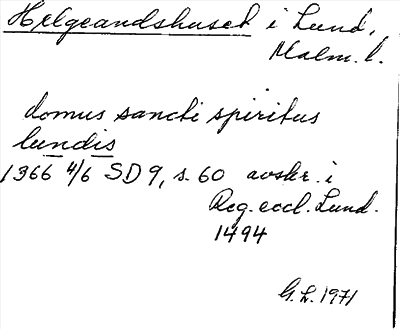 Helgeandshuset i Lund,
Malm. l.
domus sancti spiritus
lundis
1366 4/6 SD 9, s. 60 avskr. i
Reg. eccl. Lund.
1494
G. L. 1971